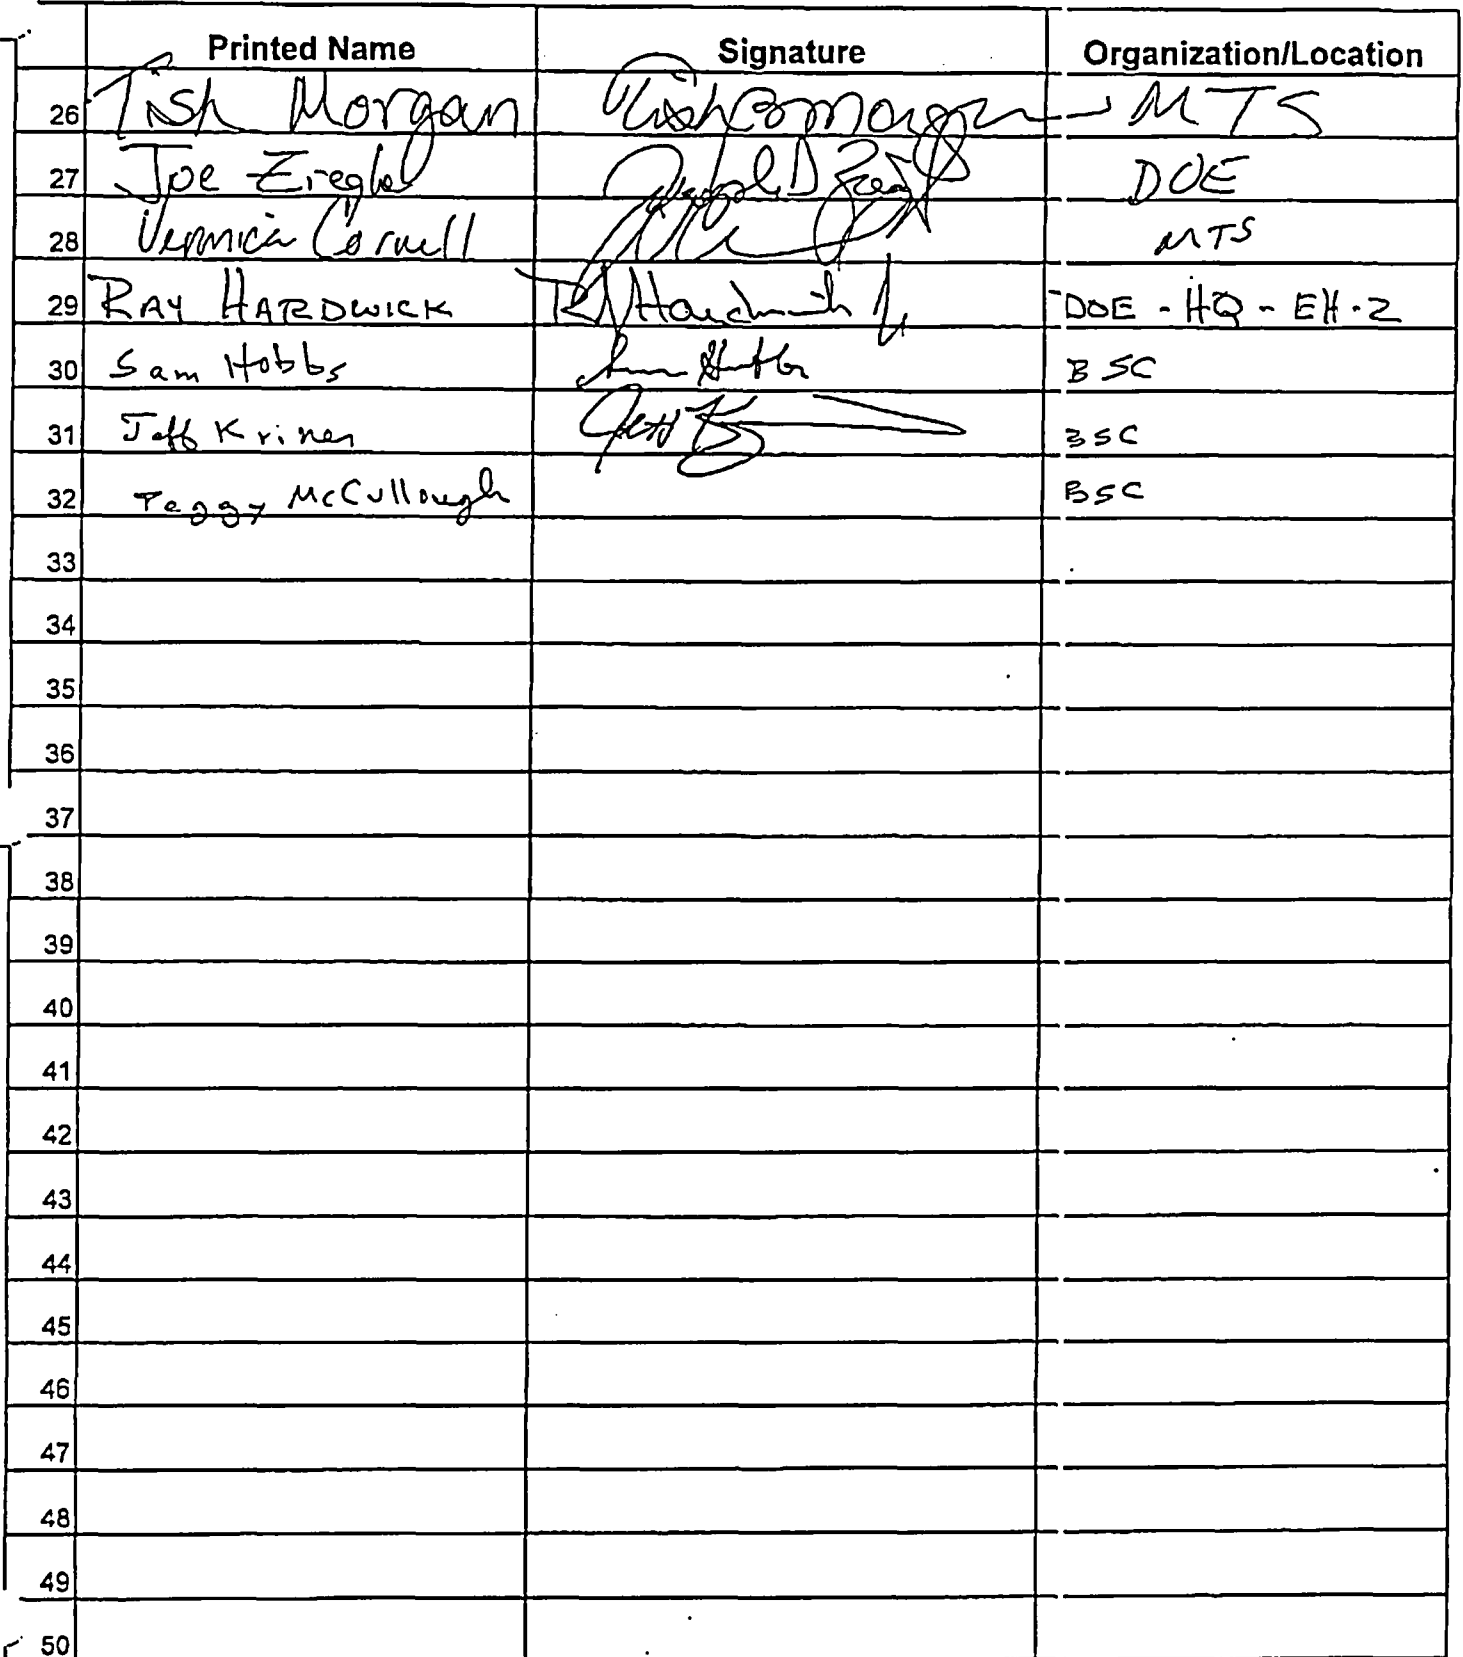 Printed Name Signature Organization/Location
26 Tish Morgan Tish B Morgan MTS
27 Joe Ziegler Joseph D Zieg DOE
28 Veronica Cornell MTS
29 RAY HARDWICK R Hardwick DOE - HQ - EH-2
30 Sam Hobbs Sam Hobbs BSC
31 Jeff Kriner Jeff K BSC
32 Peggy McCullough BSC
33
34
35
36
37
38
39
40
41
42
43
44
45
46
47
48
49
50